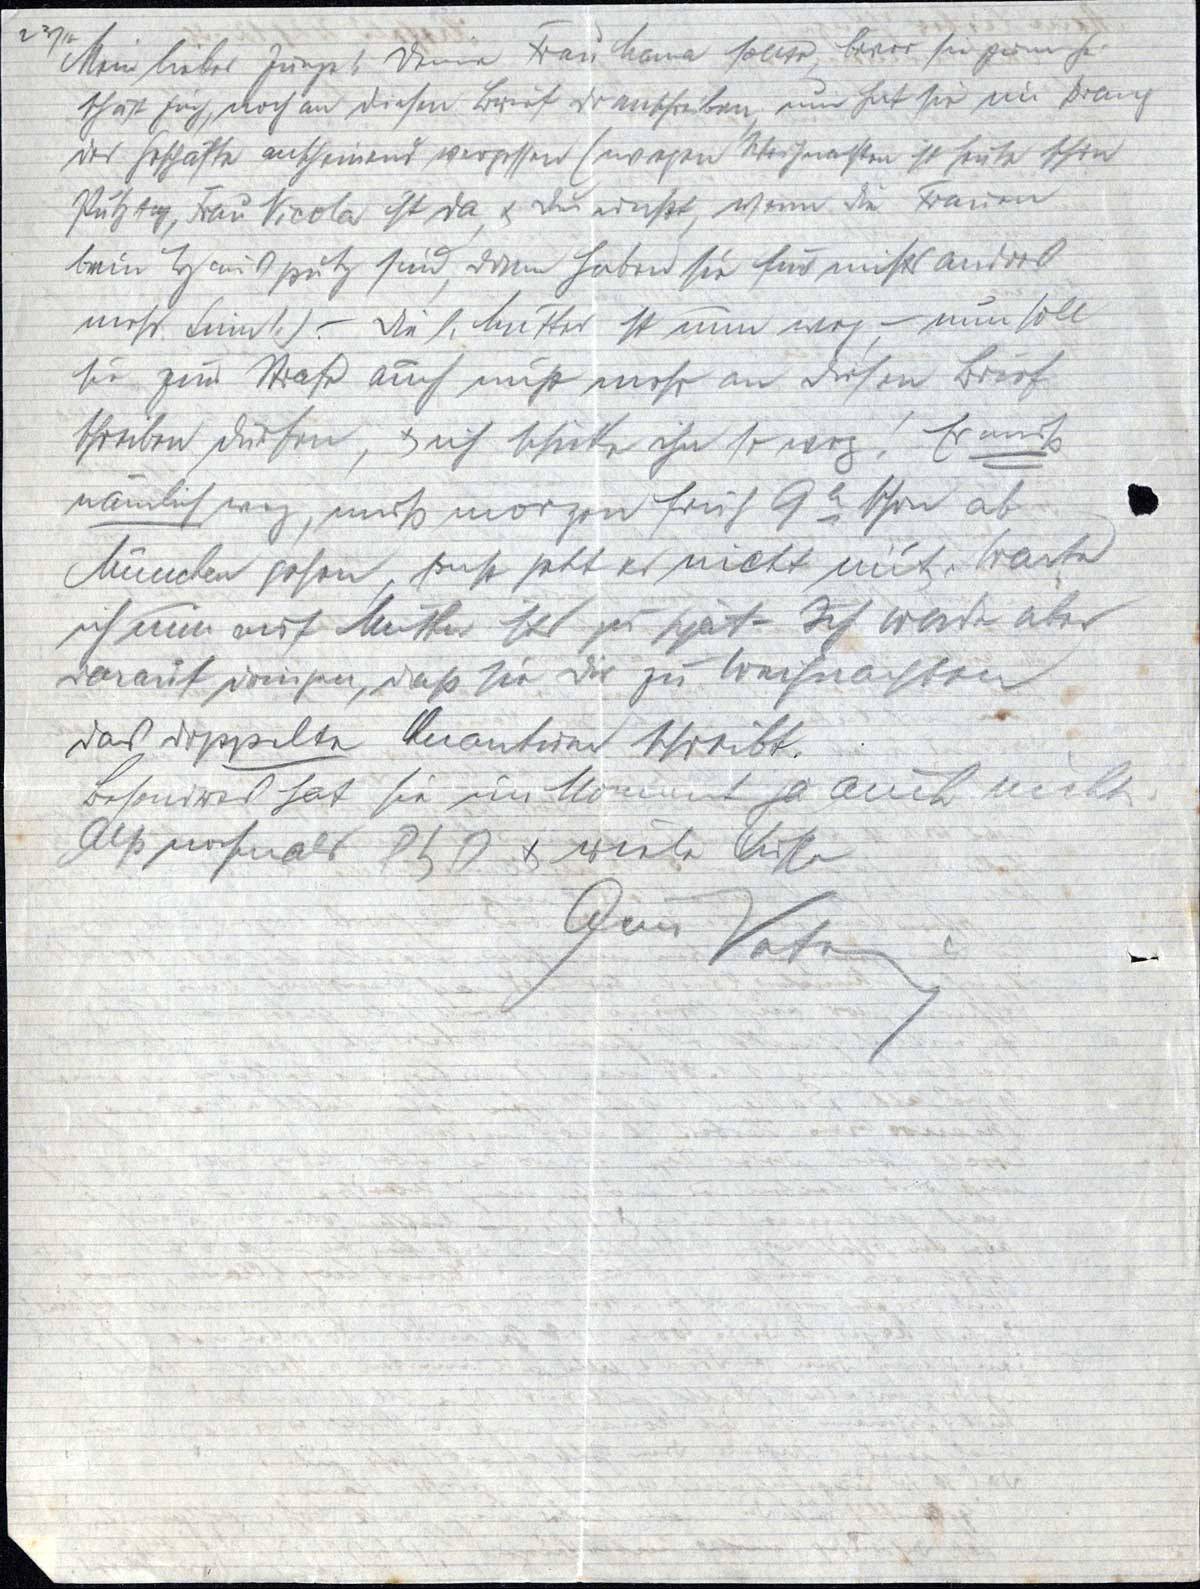 Mein lieber Junge! Deine Frau Mama sollte, bevor sie zum Ge-
schäft ging, noch an diesen Brief dranschreiben, nun hat sie im Drang
der Geschäfte anscheinend vergessen (wegen Weihnachten ist heute schon
Putztag, Frau Nicola ist da, & Du weißt, wenn die Frauen
beim Hausputz sind, dann haben sie für nichts andres
mehr Sinn!) – Die l. Mutter ist nun weg, – nun soll
sie zur Strafe auch nicht mehr an diesen Brief
schreiben dürfen, & ich schicke ihn so weg! Er muß
nämlich weg, muß morgen früh 9 h schon ab
München gehen, sonst geht er nicht mit. Warte
ich nun auf Mutter ists zu spät – Ich werde aber
darauf dringen, daß sie Dir zu Weihnachten
das doppelte Quantum schreibt.
Besondres hat sie im Moment ja auch nicht.
Also nochmals & viele Grüße
Dein Vater